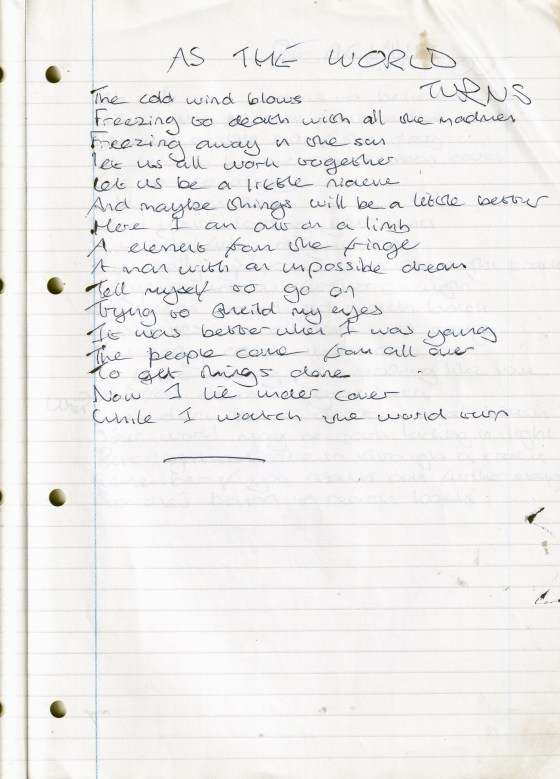 AS THE WORLD
TURNS
The cold wind blows
Freezing to death with all the madness
Freezing away in the sun
Let us all work together
Let us be a little
And maybe things will be a little better
Here I am out on a limb
A element from the fringe
A man with an impossible dream
Tell myself to go on
Trying to sheild my eyes
It was better when I was young
The people came from all over
To get things done
Now I lie under cover
While I watch the world turn